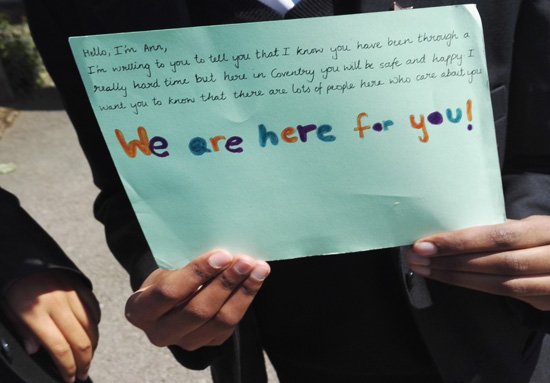 Hello, I'm Ann,
I'm writing to you to tell you that I know you have been through a
really hard time but here in Coventry you will be safe and happy I
want you to know that there are lots of people here who care about you
We are here for you!